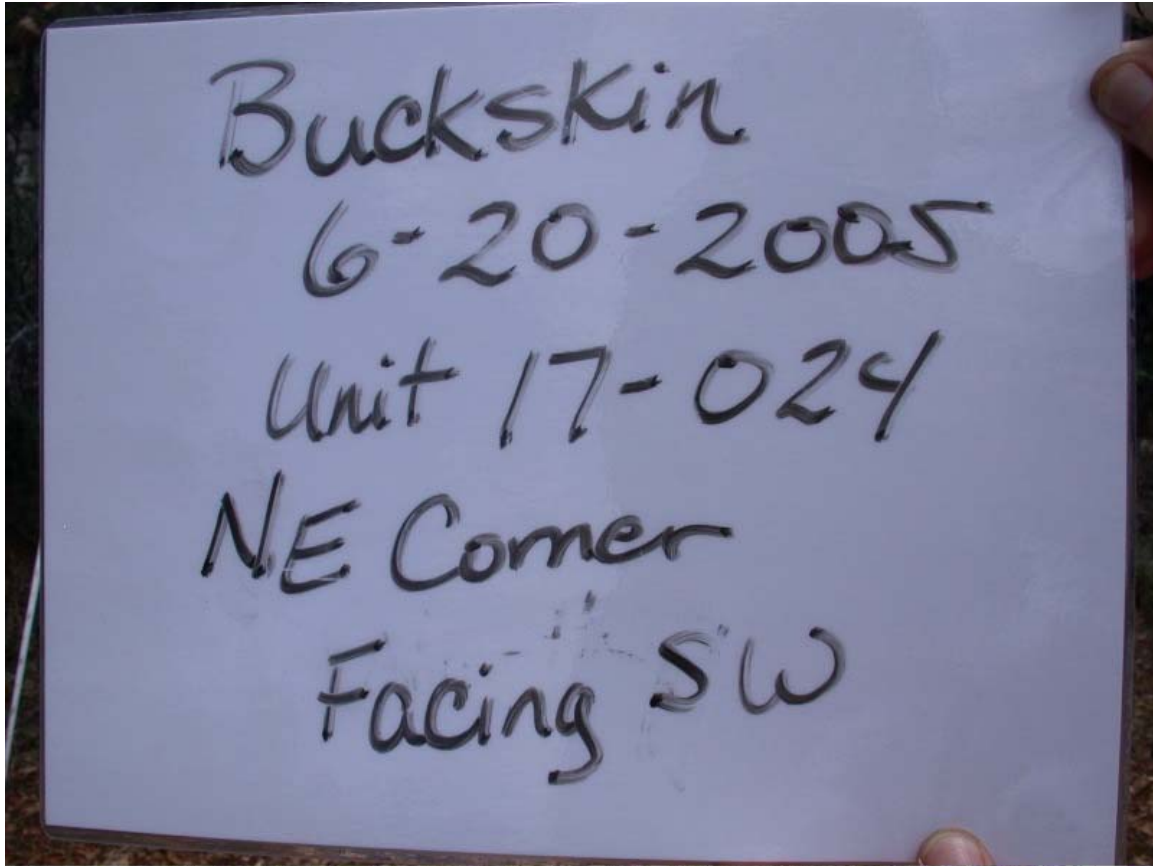 Buckskin
6-20-2005
Unit 17-024
NE Corner
Facing SW